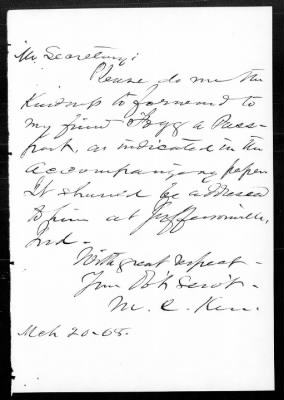 Mr Secretary:
Please do me the
kindness to forward to
my friend Fogg a Pass-
port, as indicated in the
accompanying paper
It should be addressed
to him at Jeffersonville,
Ind -
With great respect -
Your Ob't Serv't -
M. C. Kerr.
Mch 20-65.